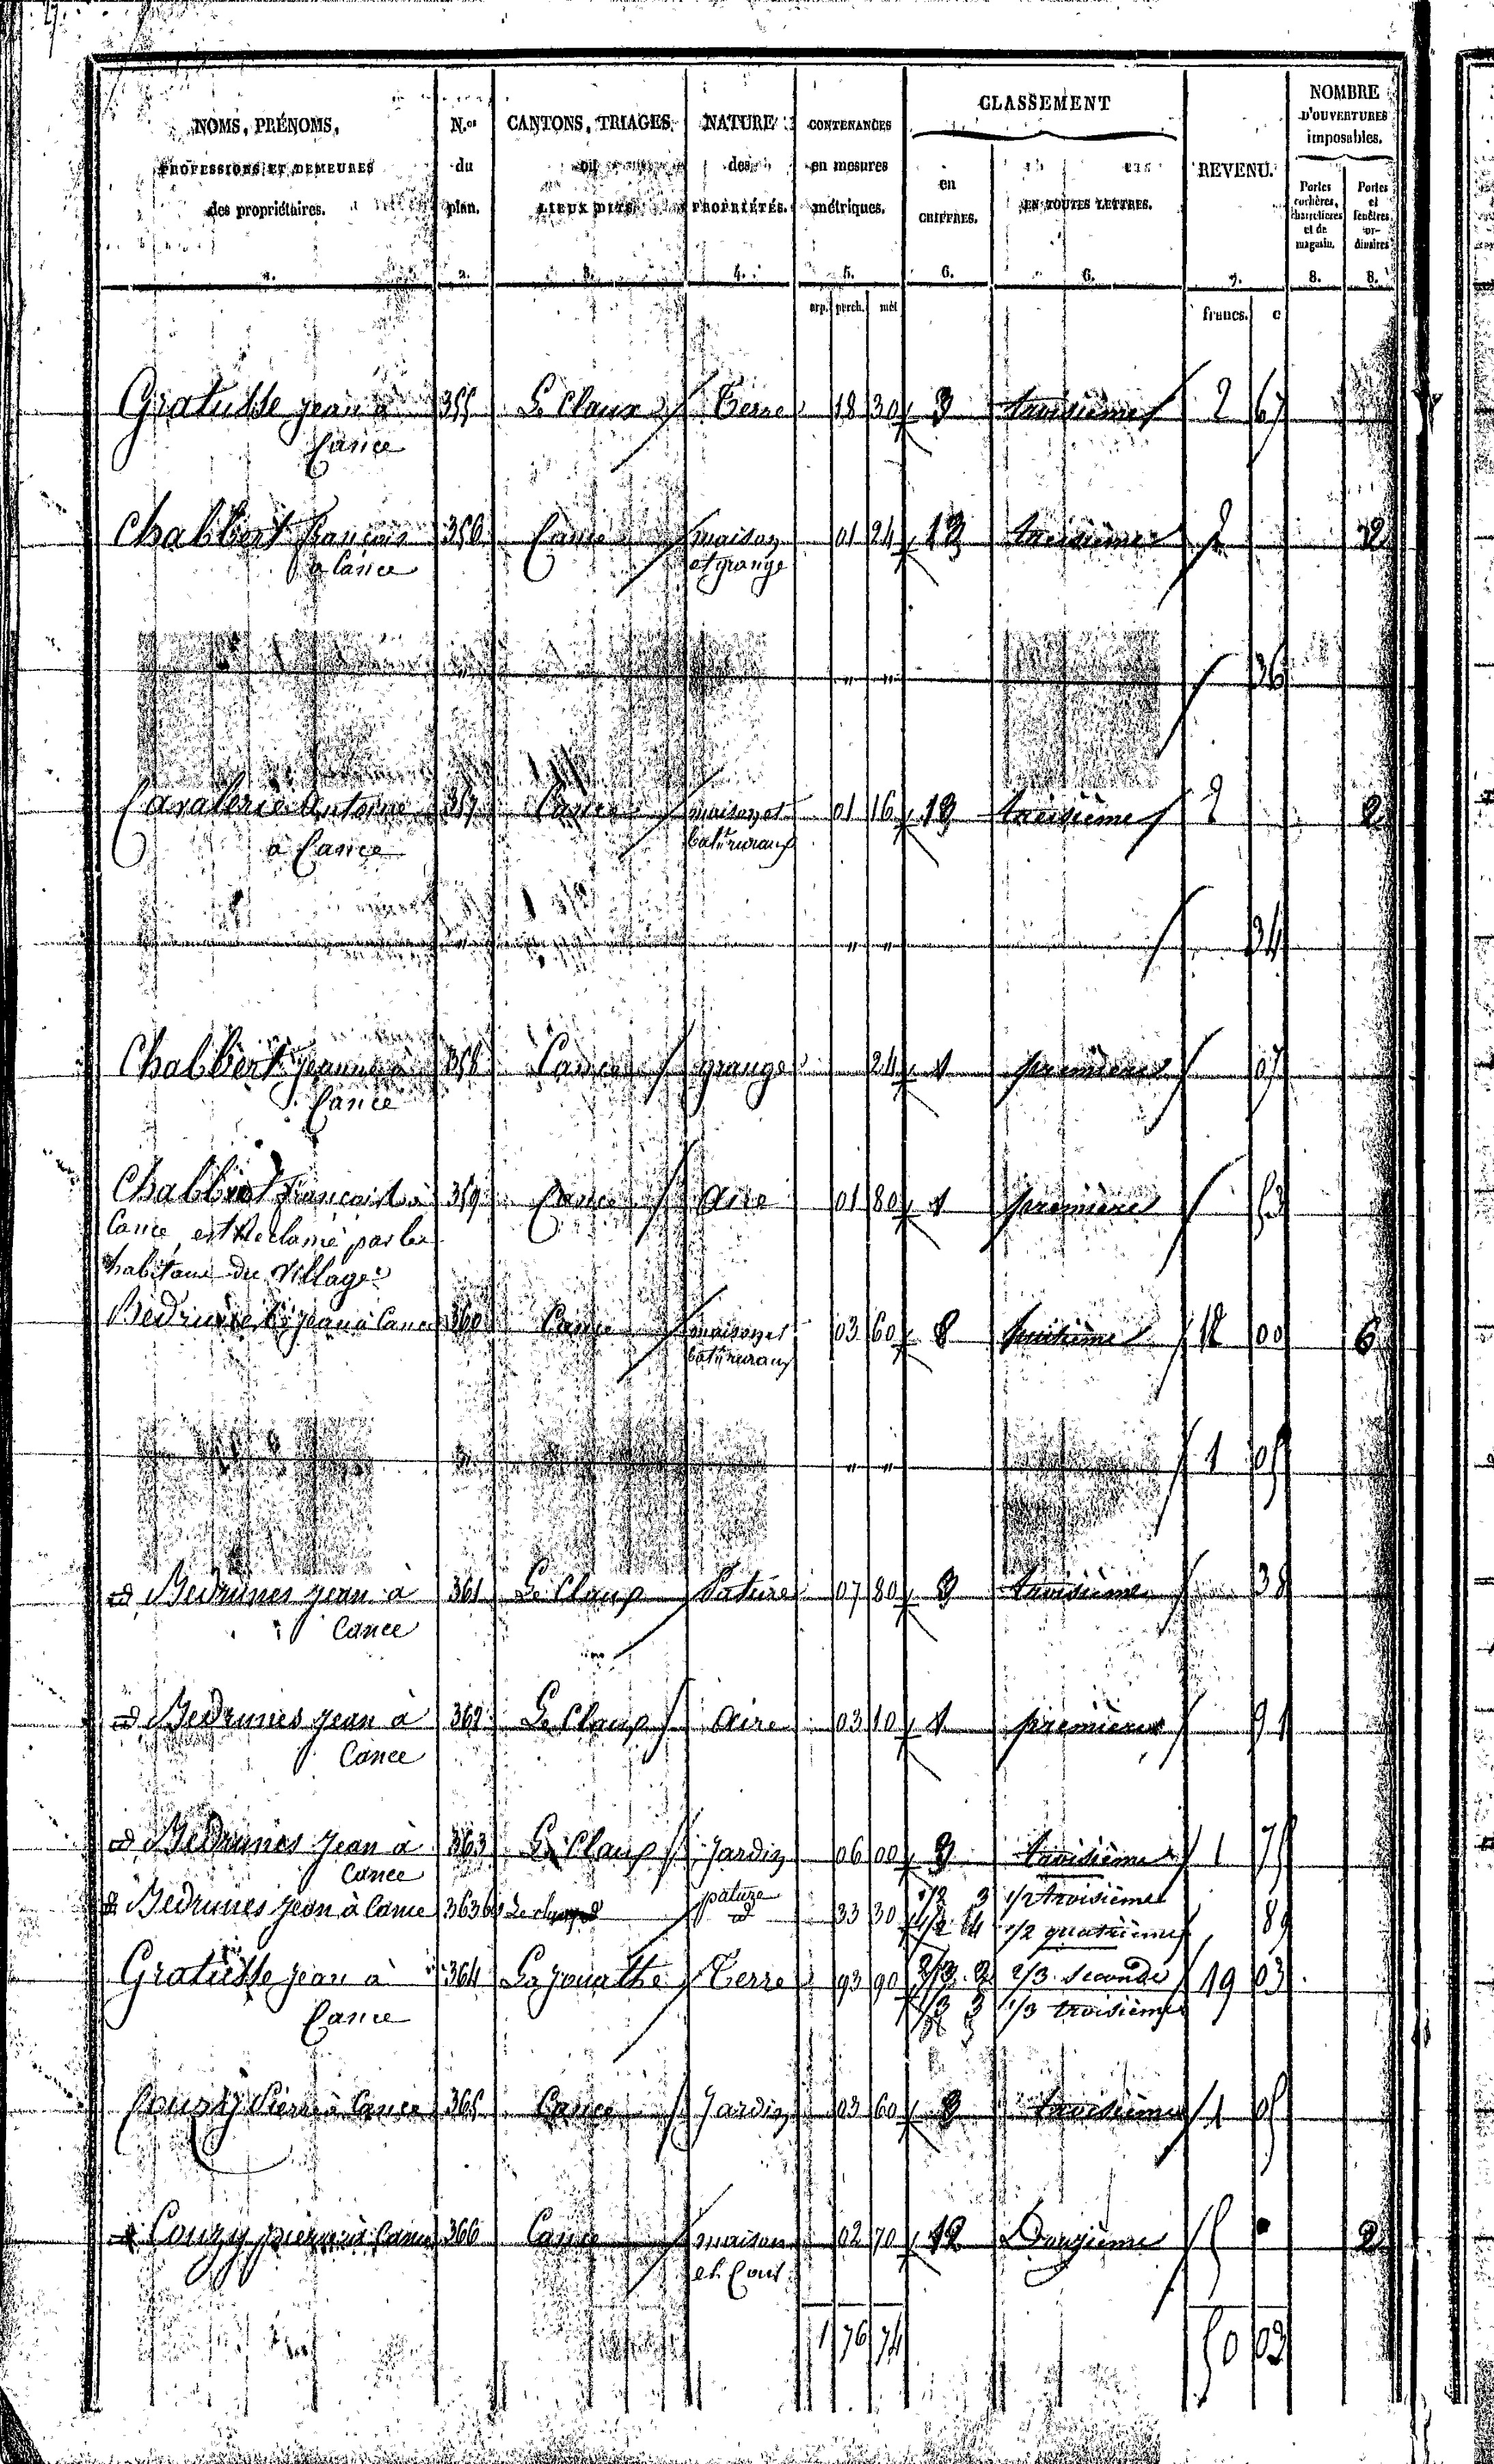 NOMS, PRÉNOMS, PROFESSIONS ET DEMEURES des propriétaires. N.os du plan. CANTONS, TRIAGES ou LIEUX DITS. NATURE des PROPRIÉTÉS. CONTENANCES en mesures métriques. CLASSEMENT en CHIFFRES. EN TOUTES LETTRES. REVENU. NOMBRE D'OUVERTURES imposables. Portes cochères, charretières et de magasin. Portes et fenêtres or-dinaires
1. 2. 3. 4. 5. 6. 6. 7. 8. 8.
arp. perch. mèt francs. c
Gratusse jean à 355 Le Claux Terre 18 30 3 troisième 2 67
Cance
Chabbert françois 356 Cance maison 01 24 13 treisième 2 2
à Cance et grange
" " 36
Cavalerie Antoine 357 Cance maison et 01 16 13 treisième 2 2
à Cance bat. ruraux
" " 34
Chabbert jeanne à 358 Cance grange 24 1 première 07
Cance
Chabbert françois à 359 Cance Aire 01 80 1 première
Cance, est Reclamé par les
habitans du Village
Bedrunes jean à Cance 360 Cance maison et 03 60 8 huitième 18 00 6
bat. ruraux
" " 1 05
id Bedrunes jean à 361 Le Claup Pature 07 80 3 troisième 38
Cance
id Bedrunes jean à 362 Le Claup Aire 03 10 1 première 91
Cance
id Bedrunes jean à 363 Le Claup Jardin 06 00 3 troisième 1 75
Cance
id Bedrunes jean à Cance 363 bis Le claup pature 33 30 1/2 3 1/2 troisième 89
1/2 4 1/2 quatrième
Gratusse jean à 364 Terre 93 90 2/3 2 2/3 seconde 19 03
Cance 1/3 3 1/3 troisième
Couzy Pierre à Cance 365 Cance Jardin 03 60 3 troisième 1 05
id Couzy pierre à Cance 366 Cance maison 02 70 12 Douzième 5 2
et Cour
1 76 74 50 03